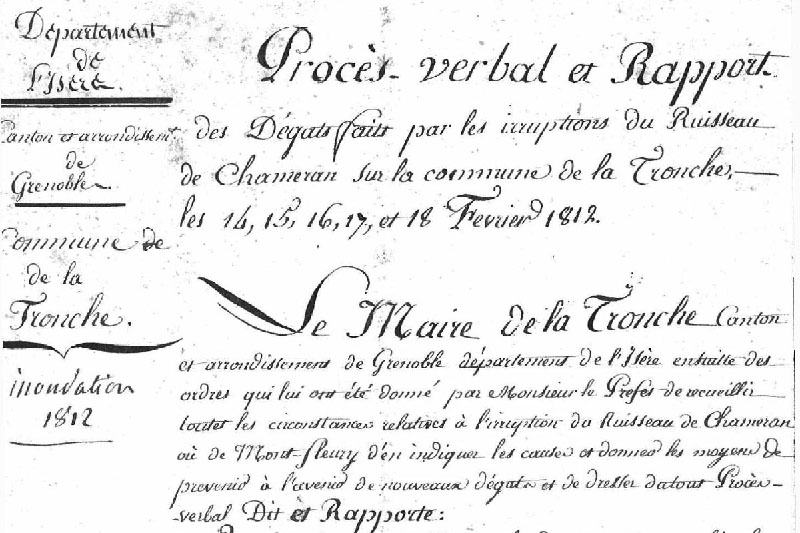 Département
de
l'Isère.
Canton et arrondissemt
de
Grenoble.
Commune de
de la
Tronche.
inondation
1812
Procès-verbal et Rapport
des Dégats faits par les irruptions du Ruisseau
de Chameran sur la commune de la Tronche,
les 14, 15, 16, 17, et 18 Fevrier 1812.
Le Maire de la Tronche Canton
et arrondissement de Grenoble département de l'Isère ensuitte des
ordres qui lui ont été donné par Monsieur le Prefet de recueillir
toutes les circonstances relatives à l'irruption du Ruisseau de Chameran
où de Mont-fleury d'en indiquer les causes et donner les moyens de
prevenir à l'avenir de nouveaux dégats et de dresser du tout Procès-
verbal Dit et Rapporte: